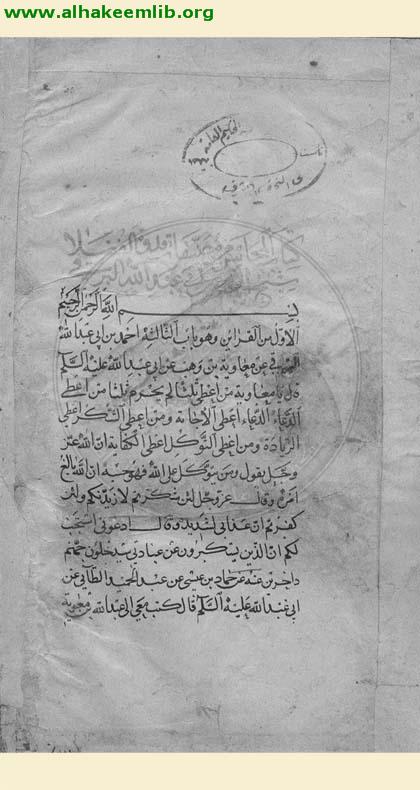 www.alhakeemlib.org
كتاب المحاسن
بسم الله الرحمن الرحيم
الاول من القرائن وهو باب الثالثة احمد بن ابي عبد الله
البرقي عن معاوية بن وهب عن ابي عبد الله عليه السلم
قال يا معاوية من اعطى ثلثا لم يحرم ثلثا من اعطى
الدعاء اعطى الاجابة ومن اعطى الشكر اعطى
الزيادة ومن اعطى التوكل اعطى الكفاية ان الله عز
وجل يقول ومن يتوكل على الله فهو حسبه ان الله بالغ
امره وقال عز وجل لئن شكرتم لازيدنكم ولئن
كفرتم ان عذابي لشديد وقال ادعوني استجب
لكم ان الذين يستكبرون عن عبادتي سيدخلون جهنم
داخرين عنه عن حماد بن عيسى عن عبد الحميد الطائي عن
ابي عبد الله عليه السلم قال كتب معي الى عبد الله بن معوية